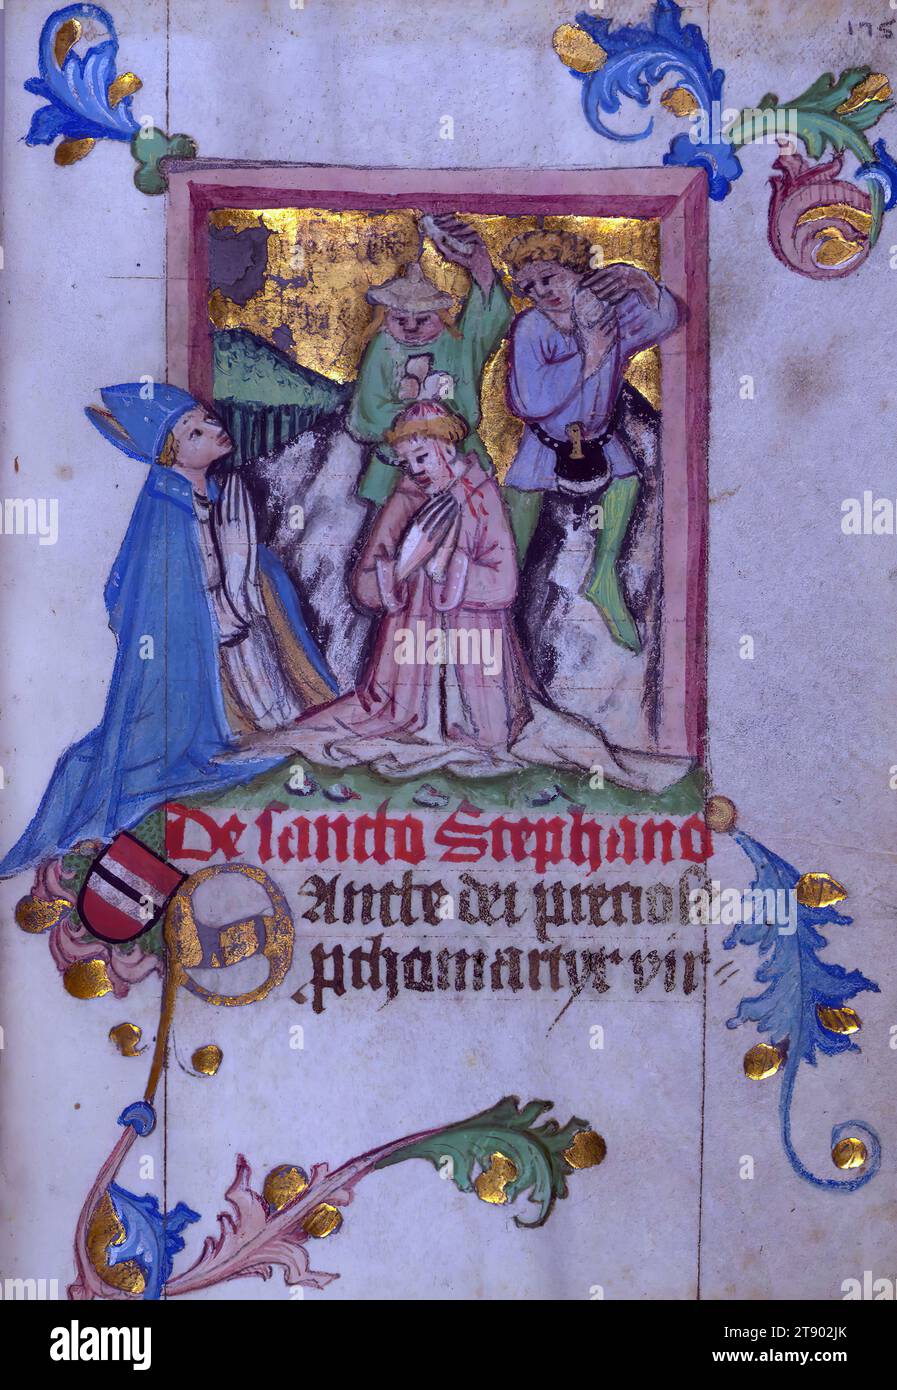 175
De sancto Stephano
Sancte dei precios
pthomartyr vir
alamy
Image ID: 2T902JK
www.alamy.com